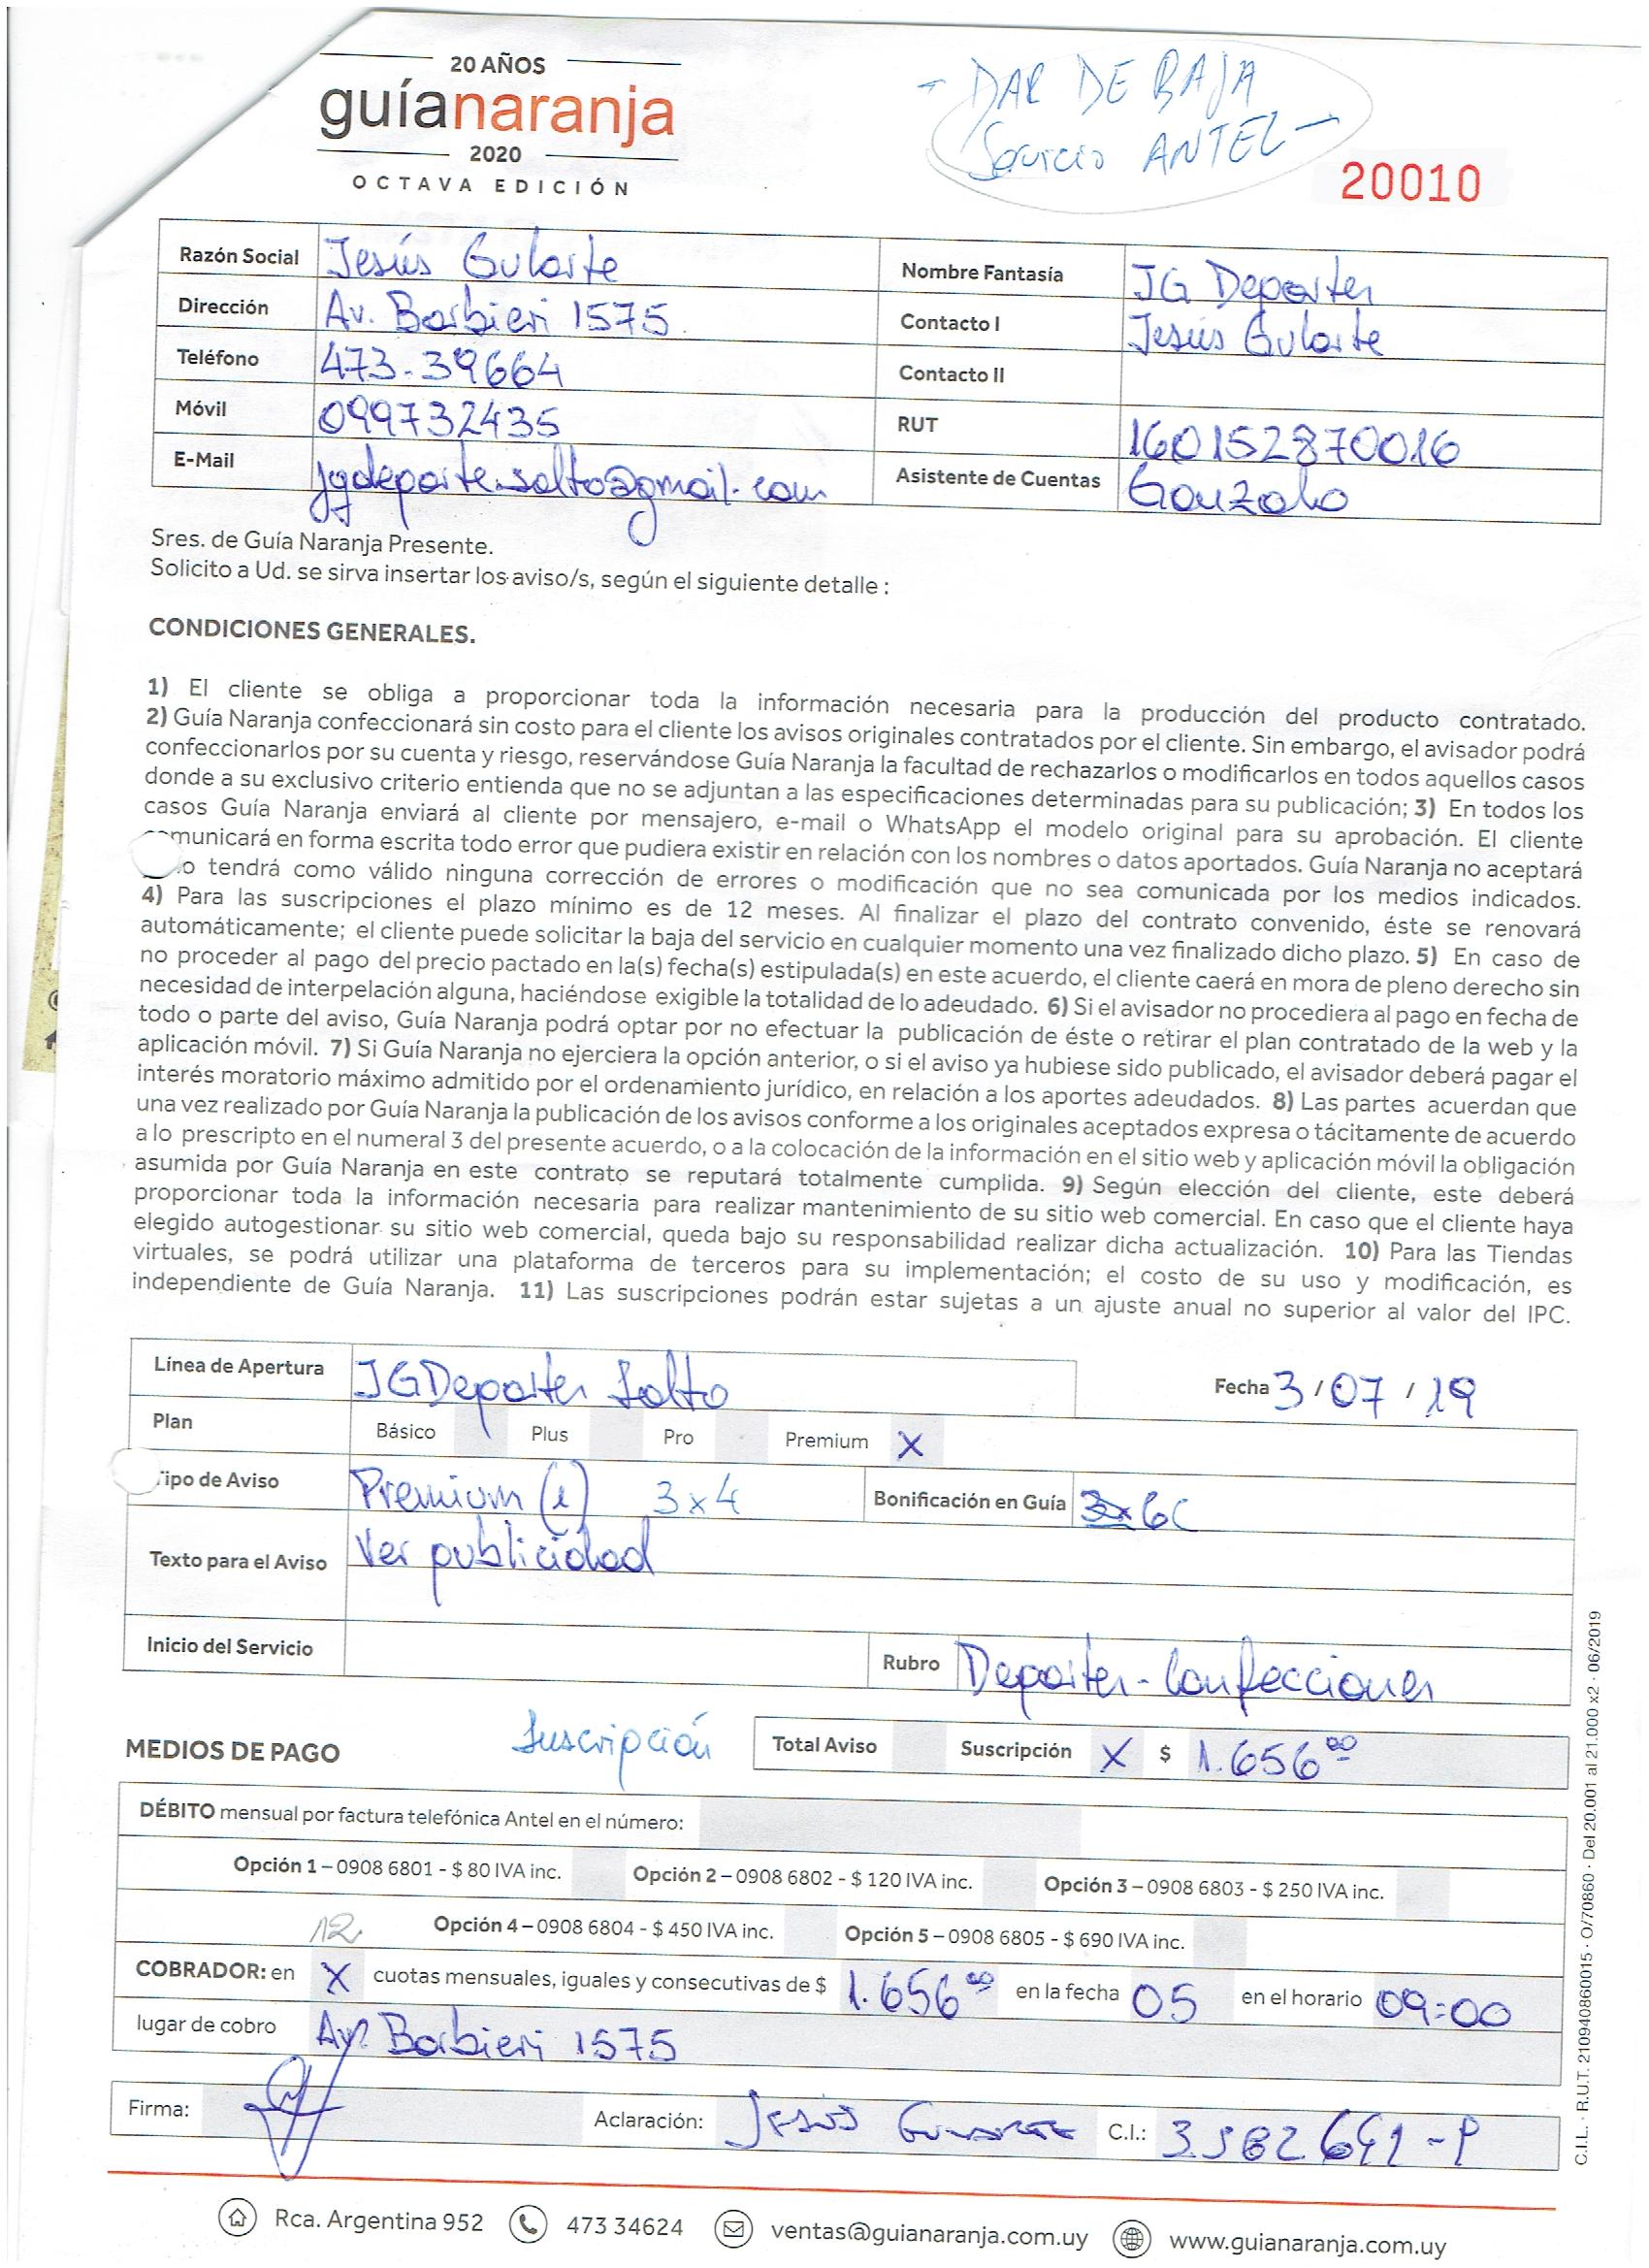 20 AÑOS
guíanaranja
2020
OCTAVA EDICIÓN
- DAR DE BAJA
Servicio ANTEL -
20010
Razón Social Jesús Gularte
Nombre Fantasía JG Deportes
Dirección Av. Barbieri 1575
Contacto I Jesús Gularte
Teléfono 473-39664
Contacto II
Móvil 099732435
RUT 160152870016
E-Mail jgdeporte.salto@gmail.com
Asistente de Cuentas Gonzalo
Sres. de Guía Naranja Presente.
Solicito a Ud. se sirva insertar los aviso/s, según el siguiente detalle :
CONDICIONES GENERALES.
1) El cliente se obliga a proporcionar toda la información necesaria para la producción del producto contratado.
2) Guía Naranja confeccionará sin costo para el cliente los avisos originales contratados por el cliente. Sin embargo, el avisador podrá
confeccionarlos por su cuenta y riesgo, reservándose Guía Naranja la facultad de rechazarlos o modificarlos en todos aquellos casos
donde a su exclusivo criterio entienda que no se adjuntan a las especificaciones determinadas para su publicación; 3) En todos los
casos Guía Naranja enviará al cliente por mensajero, e-mail o WhatsApp el modelo original para su aprobación. El cliente
municará en forma escrita todo error que pudiera existir en relación con los nombres o datos aportados. Guía Naranja no aceptará
o tendrá como válido ninguna corrección de errores o modificación que no sea comunicada por los medios indicados.
4) Para las suscripciones el plazo mínimo es de 12 meses. Al finalizar el plazo del contrato convenido, éste se renovará
automáticamente; el cliente puede solicitar la baja del servicio en cualquier momento una vez finalizado dicho plazo. 5) En caso de
no proceder al pago del precio pactado en la(s) fecha(s) estipulada(s) en este acuerdo, el cliente caerá en mora de pleno derecho sin
necesidad de interpelación alguna, haciéndose exigible la totalidad de lo adeudado. 6) Si el avisador no procediera al pago en fecha de
todo o parte del aviso, Guía Naranja podrá optar por no efectuar la publicación de éste o retirar el plan contratado de la web y la
aplicación móvil. 7) Si Guía Naranja no ejerciera la opción anterior, o si el aviso ya hubiese sido publicado, el avisador deberá pagar el
interés moratorio máximo admitido por el ordenamiento jurídico, en relación a los aportes adeudados. 8) Las partes acuerdan que
una vez realizado por Guía Naranja la publicación de los avisos conforme a los originales aceptados expresa o tácitamente de acuerdo
a lo prescripto en el numeral 3 del presente acuerdo, o a la colocación de la información en el sitio web y aplicación móvil la obligación
asumida por Guía Naranja en este contrato se reputará totalmente cumplida. 9) Según elección del cliente, este deberá
proporcionar toda la información necesaria para realizar mantenimiento de su sitio web comercial. En caso que el cliente haya
elegido autogestionar su sitio web comercial, queda bajo su responsabilidad realizar dicha actualización. 10) Para las Tiendas
virtuales, se podrá utilizar una plataforma de terceros para su implementación; el costo de su uso y modificación, es
independiente de Guía Naranja. 11) Las suscripciones podrán estar sujetas a un ajuste anual no superior al valor del IPC.
Línea de Apertura JG Deportes Salto
Fecha 3 / 07 / 19
Plan Básico Plus Pro Premium X
Tipo de Aviso Premium (1) 3x4
Bonificación en Guía 6C
Texto para el Aviso Ver publicidad
Inicio del Servicio
Rubro Deportes - Confecciones
MEDIOS DE PAGO
Suscripción
Total Aviso Suscripción X $ 1.656 00
DÉBITO mensual por factura telefónica Antel en el número:
Opción 1 – 0908 6801 - $ 80 IVA inc. Opción 2 – 0908 6802 - $ 120 IVA inc. Opción 3 – 0908 6803 - $ 250 IVA inc.
Opción 4 – 0908 6804 - $ 450 IVA inc. Opción 5 – 0908 6805 - $ 690 IVA inc.
12
COBRADOR: en X cuotas mensuales, iguales y consecutivas de $ 1.656 00 en la fecha 05 en el horario 09:00
lugar de cobro Av. Barbieri 1575
Firma:
Aclaración: JESUS GULARTE
C.I.:
C.I.L. · R.U.T. 210940860015 · O/70860 · Del 20.001 al 21.000 x2 · 06/2019
Rca. Argentina 952 473 34624 ventas@guianaranja.com.uy www.guianaranja.com.uy